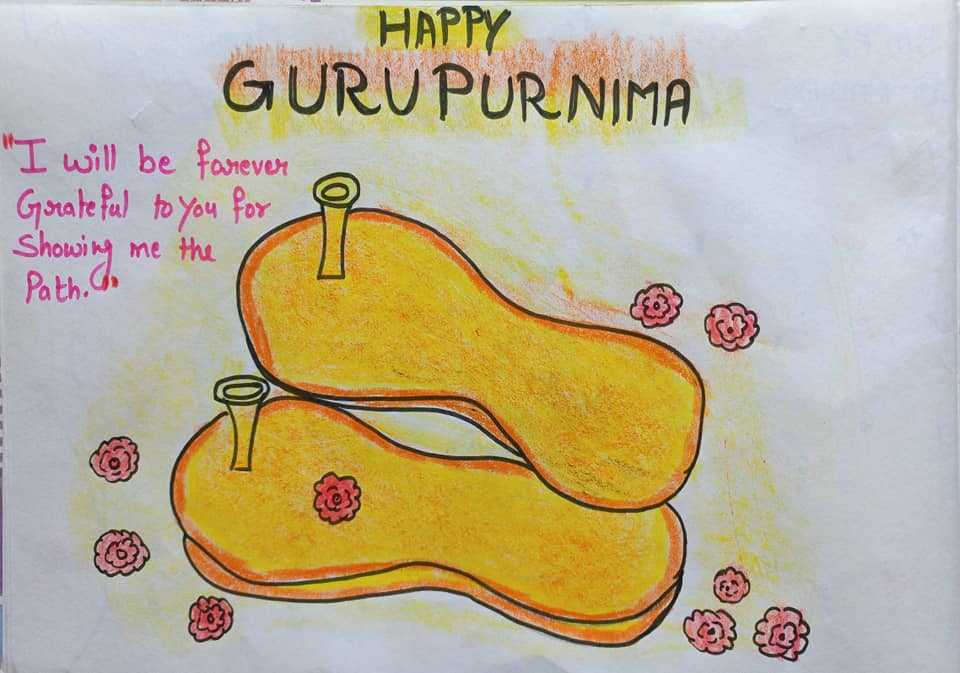 HAPPY
GURU PURNIMA
"I will be forever
Grateful to You for
Showing me the
Path."